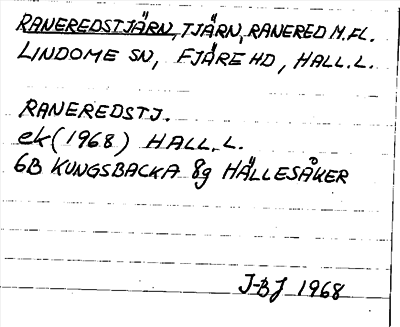 RANEREDSTJÄRN, TJÄRN, RANERED M.FL.
LINDOME SN, FJÄRE HD, HALL.L.
RANEREDSTJ.
ek (1968) HALL.L.
6B KUNGSBACKA 8g HÄLLESÅKER
J-BJ 1968